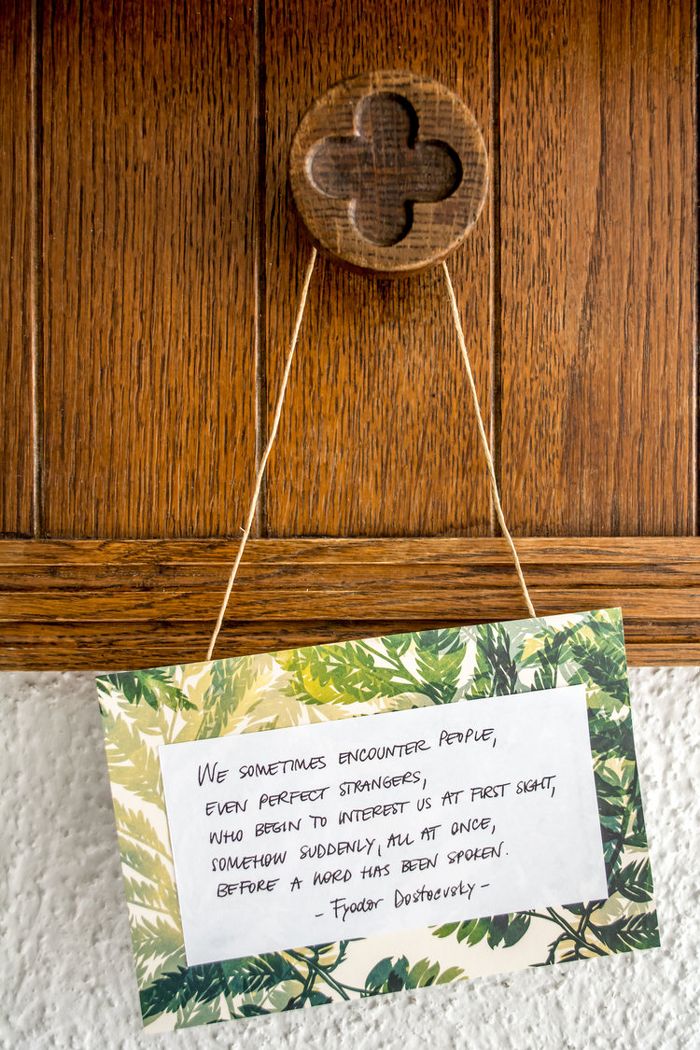 WE SOMETIMES ENCOUNTER PEOPLE,
EVEN PERFECT STRANGERS,
WHO BEGIN TO INTEREST US AT FIRST SIGHT,
SOMEHOW SUDDENLY, ALL AT ONCE,
BEFORE A WORD HAS BEEN SPOKEN.
- Fyodor Dostoevsky -